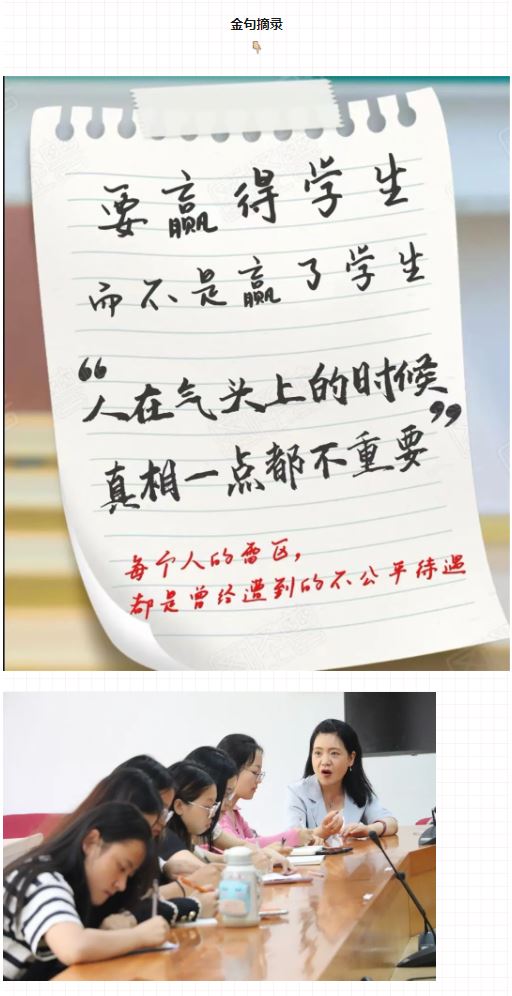 金句摘录
要赢得学生
而不是赢了学生
“人在气头上的时候
真相一点都不重要”
每个人的雷区，
都是曾经遭到的不公平待遇